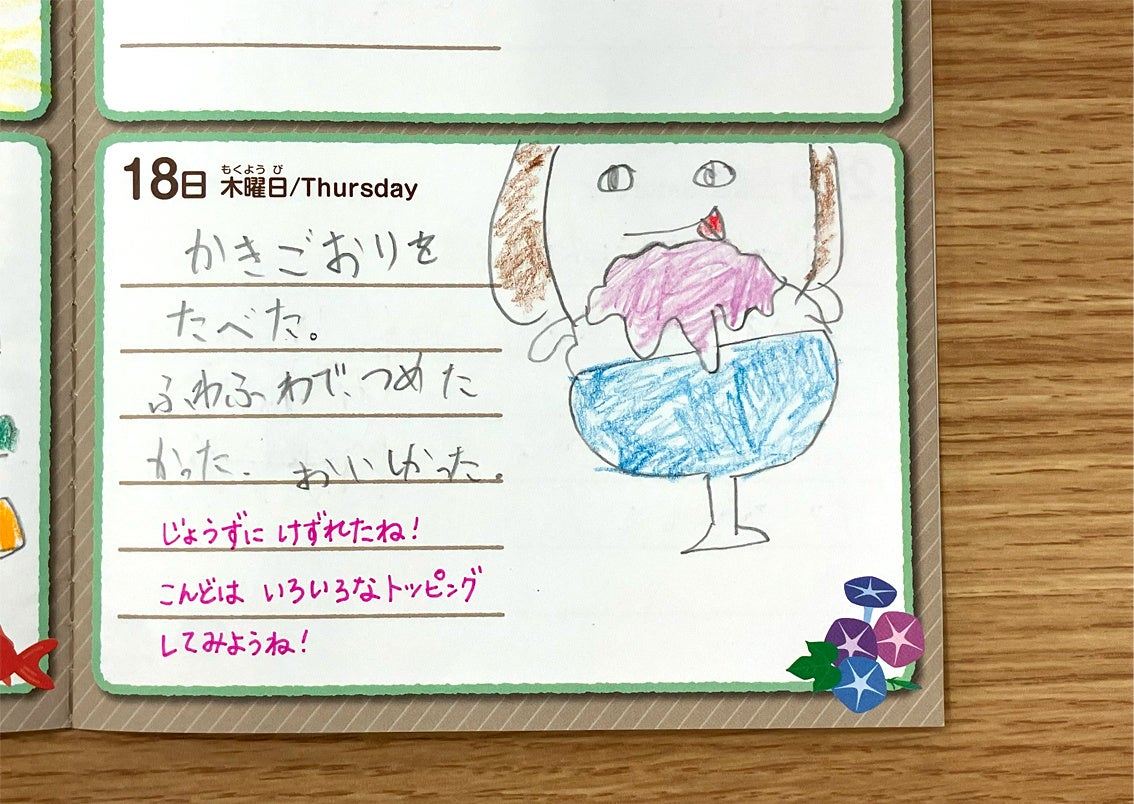 18日 木曜日/Thursday
もくようび
かきごおりを
たべた。
ふわふわで、つめた
かった。おいしかった。
じょうずに けずれたね!
こんどは いろいろなトッピング
してみようね!